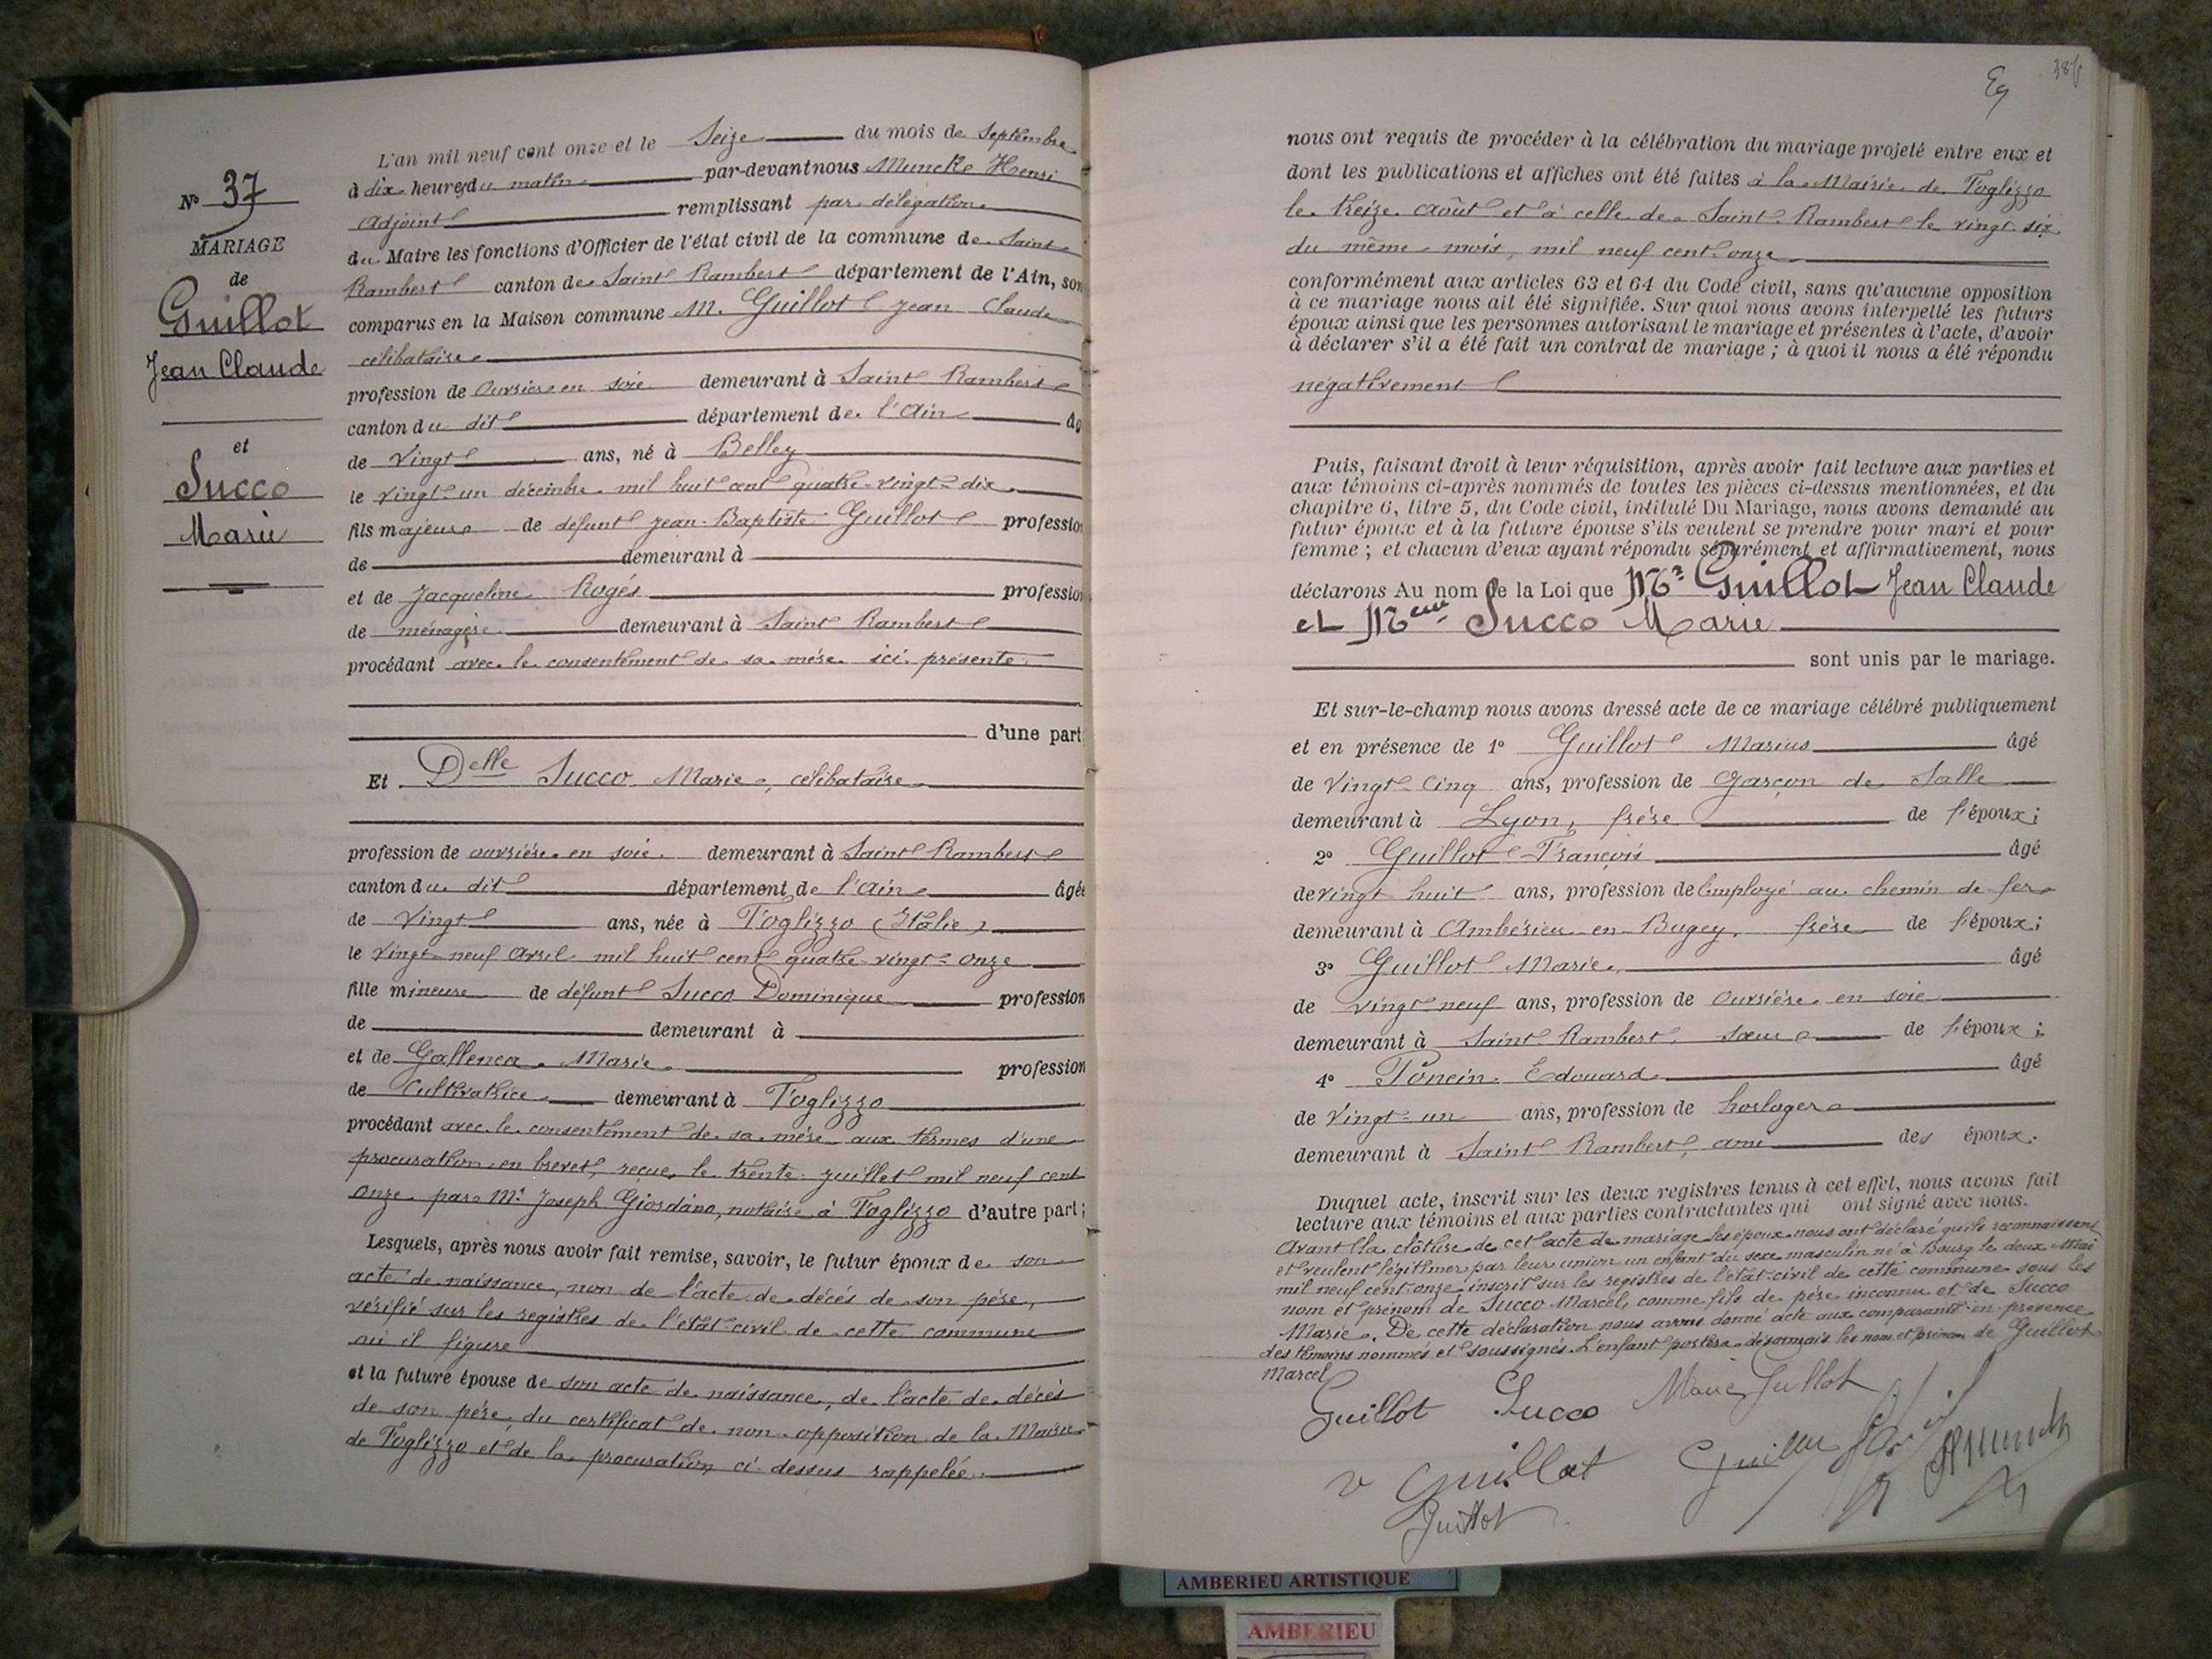 N° 37
MARIAGE
de
Guillot
Jean Claude
et
Succo
Marie
L'an mil neuf cent onze et le Seize du mois de Septembre
à dix heures du matin par-devant nous Muncke Henri
Adjoint remplissant par délégation
du Maire les fonctions d'Officier de l'état civil de la commune de Saint
Rambert canton de Saint Rambert département de l'Ain, son
comparus en la Maison commune M. Guillot Jean Claude
célibataire
profession de Ouvrier en soie demeurant à Saint Rambert
canton du dit département de l'Ain âg
de Vingt ans, né à Belley
le vingt un décembre mil huit cent quatre-vingt-dix
fils majeur de défunt Jean-Baptiste Guillot profession
de demeurant à
et de Jacqueline Rogés profession
de ménagère demeurant à Saint Rambert
procédant avec le consentement de sa mère ici présente
d'une part
Et Delle Succo Marie, célibataire
profession de ouvrière en soie demeurant à Saint Rambert
canton du dit département de l'Ain âgée
de Vingt ans, née à Foglizzo (Italie)
le vingt neuf Avril mil huit cent quatre-vingt-onze
fille mineure de défunt Succo Dominique profession
de demeurant à
et de Gallenca Marie profession
de Cultivatrice demeurant à Foglizzo
procédant avec le consentement de sa mère aux termes d'une
procuration en brevet, reçue le trente juillet mil neuf cent
onze par Me Joseph Giordano, notaire à Foglizzo d'autre part;
Lesquels, après nous avoir fait remise, savoir, le futur époux de son
acte de naissance, non de l'acte de décès de son père,
vérifié sur les registres de l'état-civil de cette commune
où il figure
et la future épouse de son acte de naissance, de l'acte de décès
de son père, du certificat de non opposition de la Mairie
de Foglizzo et de la procuration ci-dessus rappelée.
386
nous ont requis de procéder à la célébration du mariage projeté entre eux et
dont les publications et affiches ont été faites à la Mairie de Foglizzo
le treize août et à celle de Saint-Rambert le vingt-six
du même mois, mil neuf cent onze
conformément aux articles 63 et 64 du Code civil, sans qu'aucune opposition
à ce mariage nous ait été signifiée. Sur quoi nous avons interpellé les futurs
époux ainsi que les personnes autorisant le mariage et présentes à l'acte, d'avoir
à déclarer s'il a été fait un contrat de mariage ; à quoi il nous a été répondu
négativement
Puis, faisant droit à leur réquisition, après avoir fait lecture aux parties et
aux témoins ci-après nommés de toutes les pièces ci-dessus mentionnées, et du
chapitre 6, titre 5, du Code civil, intitulé Du Mariage, nous avons demandé au
futur époux et à la future épouse s'ils veulent se prendre pour mari et pour
femme ; et chacun d'eux ayant répondu séparément et affirmativement, nous
déclarons Au nom de la Loi que Mr Guillot Jean Claude
et Melle Succo Marie
sont unis par le mariage.
Et sur-le-champ nous avons dressé acte de ce mariage célébré publiquement
et en présence de 1° Guillot Marius âgé
de Vingt-Cinq ans, profession de Garçon de Salle
demeurant à Lyon, frère de l'époux;
2° Guillot François âgé
de vingt huit ans, profession de Employé au chemin de fer
demeurant à Ambérieu-en-Bugey, frère de l'époux;
3° Guillot Marie âgé
de vingt-neuf ans, profession de Ouvrière en soie
demeurant à Saint Rambert, sœur de l'époux;
4° Poncin Edouard âgé
de Vingt-un ans, profession de horloger
demeurant à Saint Rambert, ami des époux.
Duquel acte, inscrit sur les deux registres tenus à cet effet, nous avons fait
lecture aux témoins et aux parties contractantes qui ont signé avec nous.
Avant la clôture de cet acte de mariage les époux nous ont déclaré qu'ils reconnaissent
et veulent légitimer par leur union un enfant du sexe masculin né à Bourg le deux Mai
mil neuf cent onze inscrit sur les registres de l'état-civil de cette commune sous les
nom et prénom de Succo Marcel, comme fils de père inconnu et de Succo
Marie. De cette déclaration nous avons donné acte aux comparants en présence
des témoins nommés et soussignés. L'enfant portera désormais les nom et prénom de Guillot
Marcel
Guillot Succo Marie Guillot
v Guillot Guillot
Guillot
AMBERIEU ARTISTIQUE
AMBERIEU